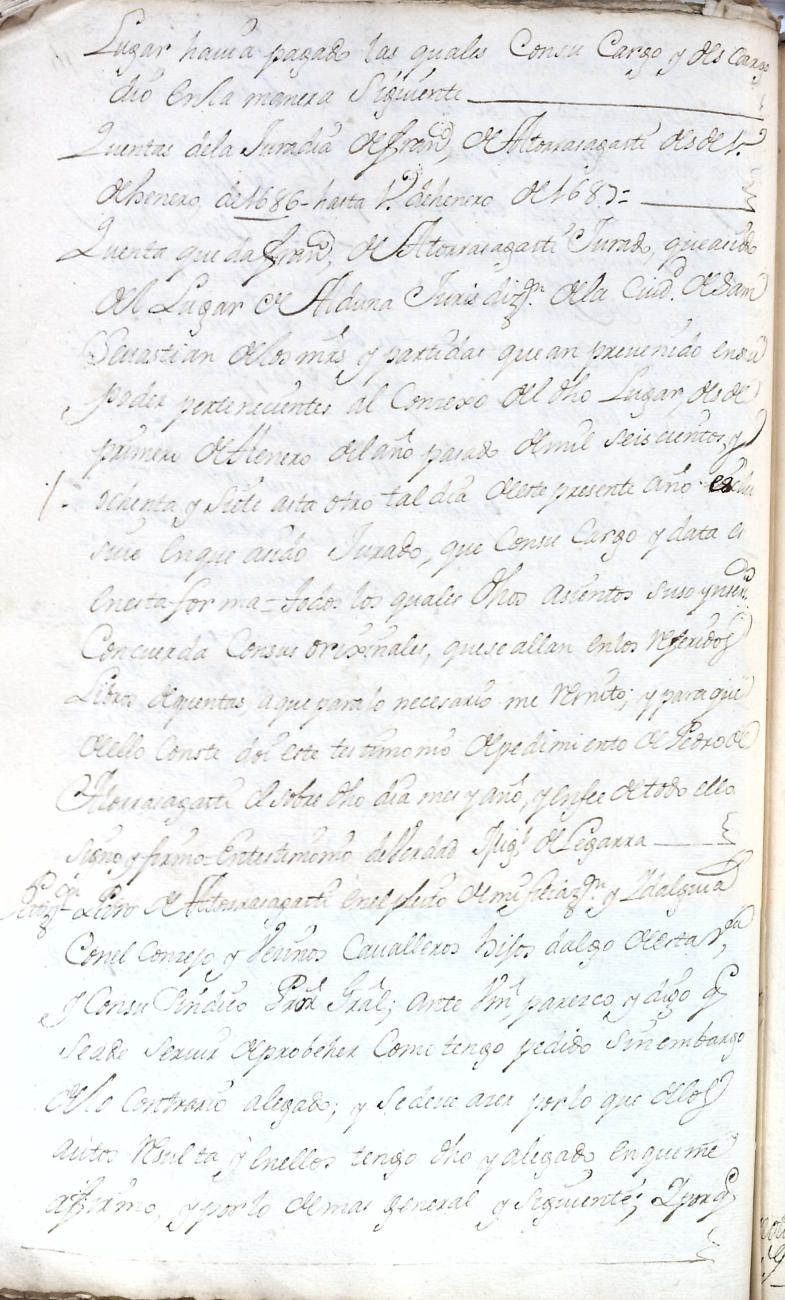 Lugar havia pagado las quales Con su Cargo y descargo
dio en la manera siguiente
Quentas de la Juradia de Fran.co de Atorrasagasti desde 1.º
de henero de 1686 - hasta 1.º de henero de 1687 =
Quenta que da Fran.co de Atorrasagasti Jurado, que a sido
del Lugar de Alduna Jurisdiz.on de la Ciud.d de San
Sevastian de los mrs y partidas que an prevenido en su
poder pertenecientes al Conzexo del dho Lugar, desde
primero de Henero del año pasado de mil seiscientos y
ochenta y siete asta otro tal dia de este presente año
sive en que a sido Jurado, que con su Cargo y data es
en esta forma = todos los quales dhos asientos suso ynser.os
Concuerda Con sus orixinales, que se allan en los referidos
Libros de quentas, a que para lo necesario me remito; y para que
de ello Conste doi este testimonio de pedimiento de Pedro de
Atorrasagasti el sobre dho dia mes y año, y en fee de todo ello
signo y firmo = En testimonio de Verdad Mig.l de Legarra
Petiz.on Pedro de Atorrasagasti en el pleito de mi filiaz.on y Idalguia
Con el Conzejo y Vecinos Cavalleros hijos dalgo de esta
y Con su Sindico Pror Gral; ante Vm parezco y digo q
se a de servir de probeher Como tengo pedido sin embargo
de lo Contrario alegado; y se deve acer por lo que de los
autos resulta y en ellos tengo dho y alegado en que me
afirmo, y por lo demas general y siguiente; Y porq